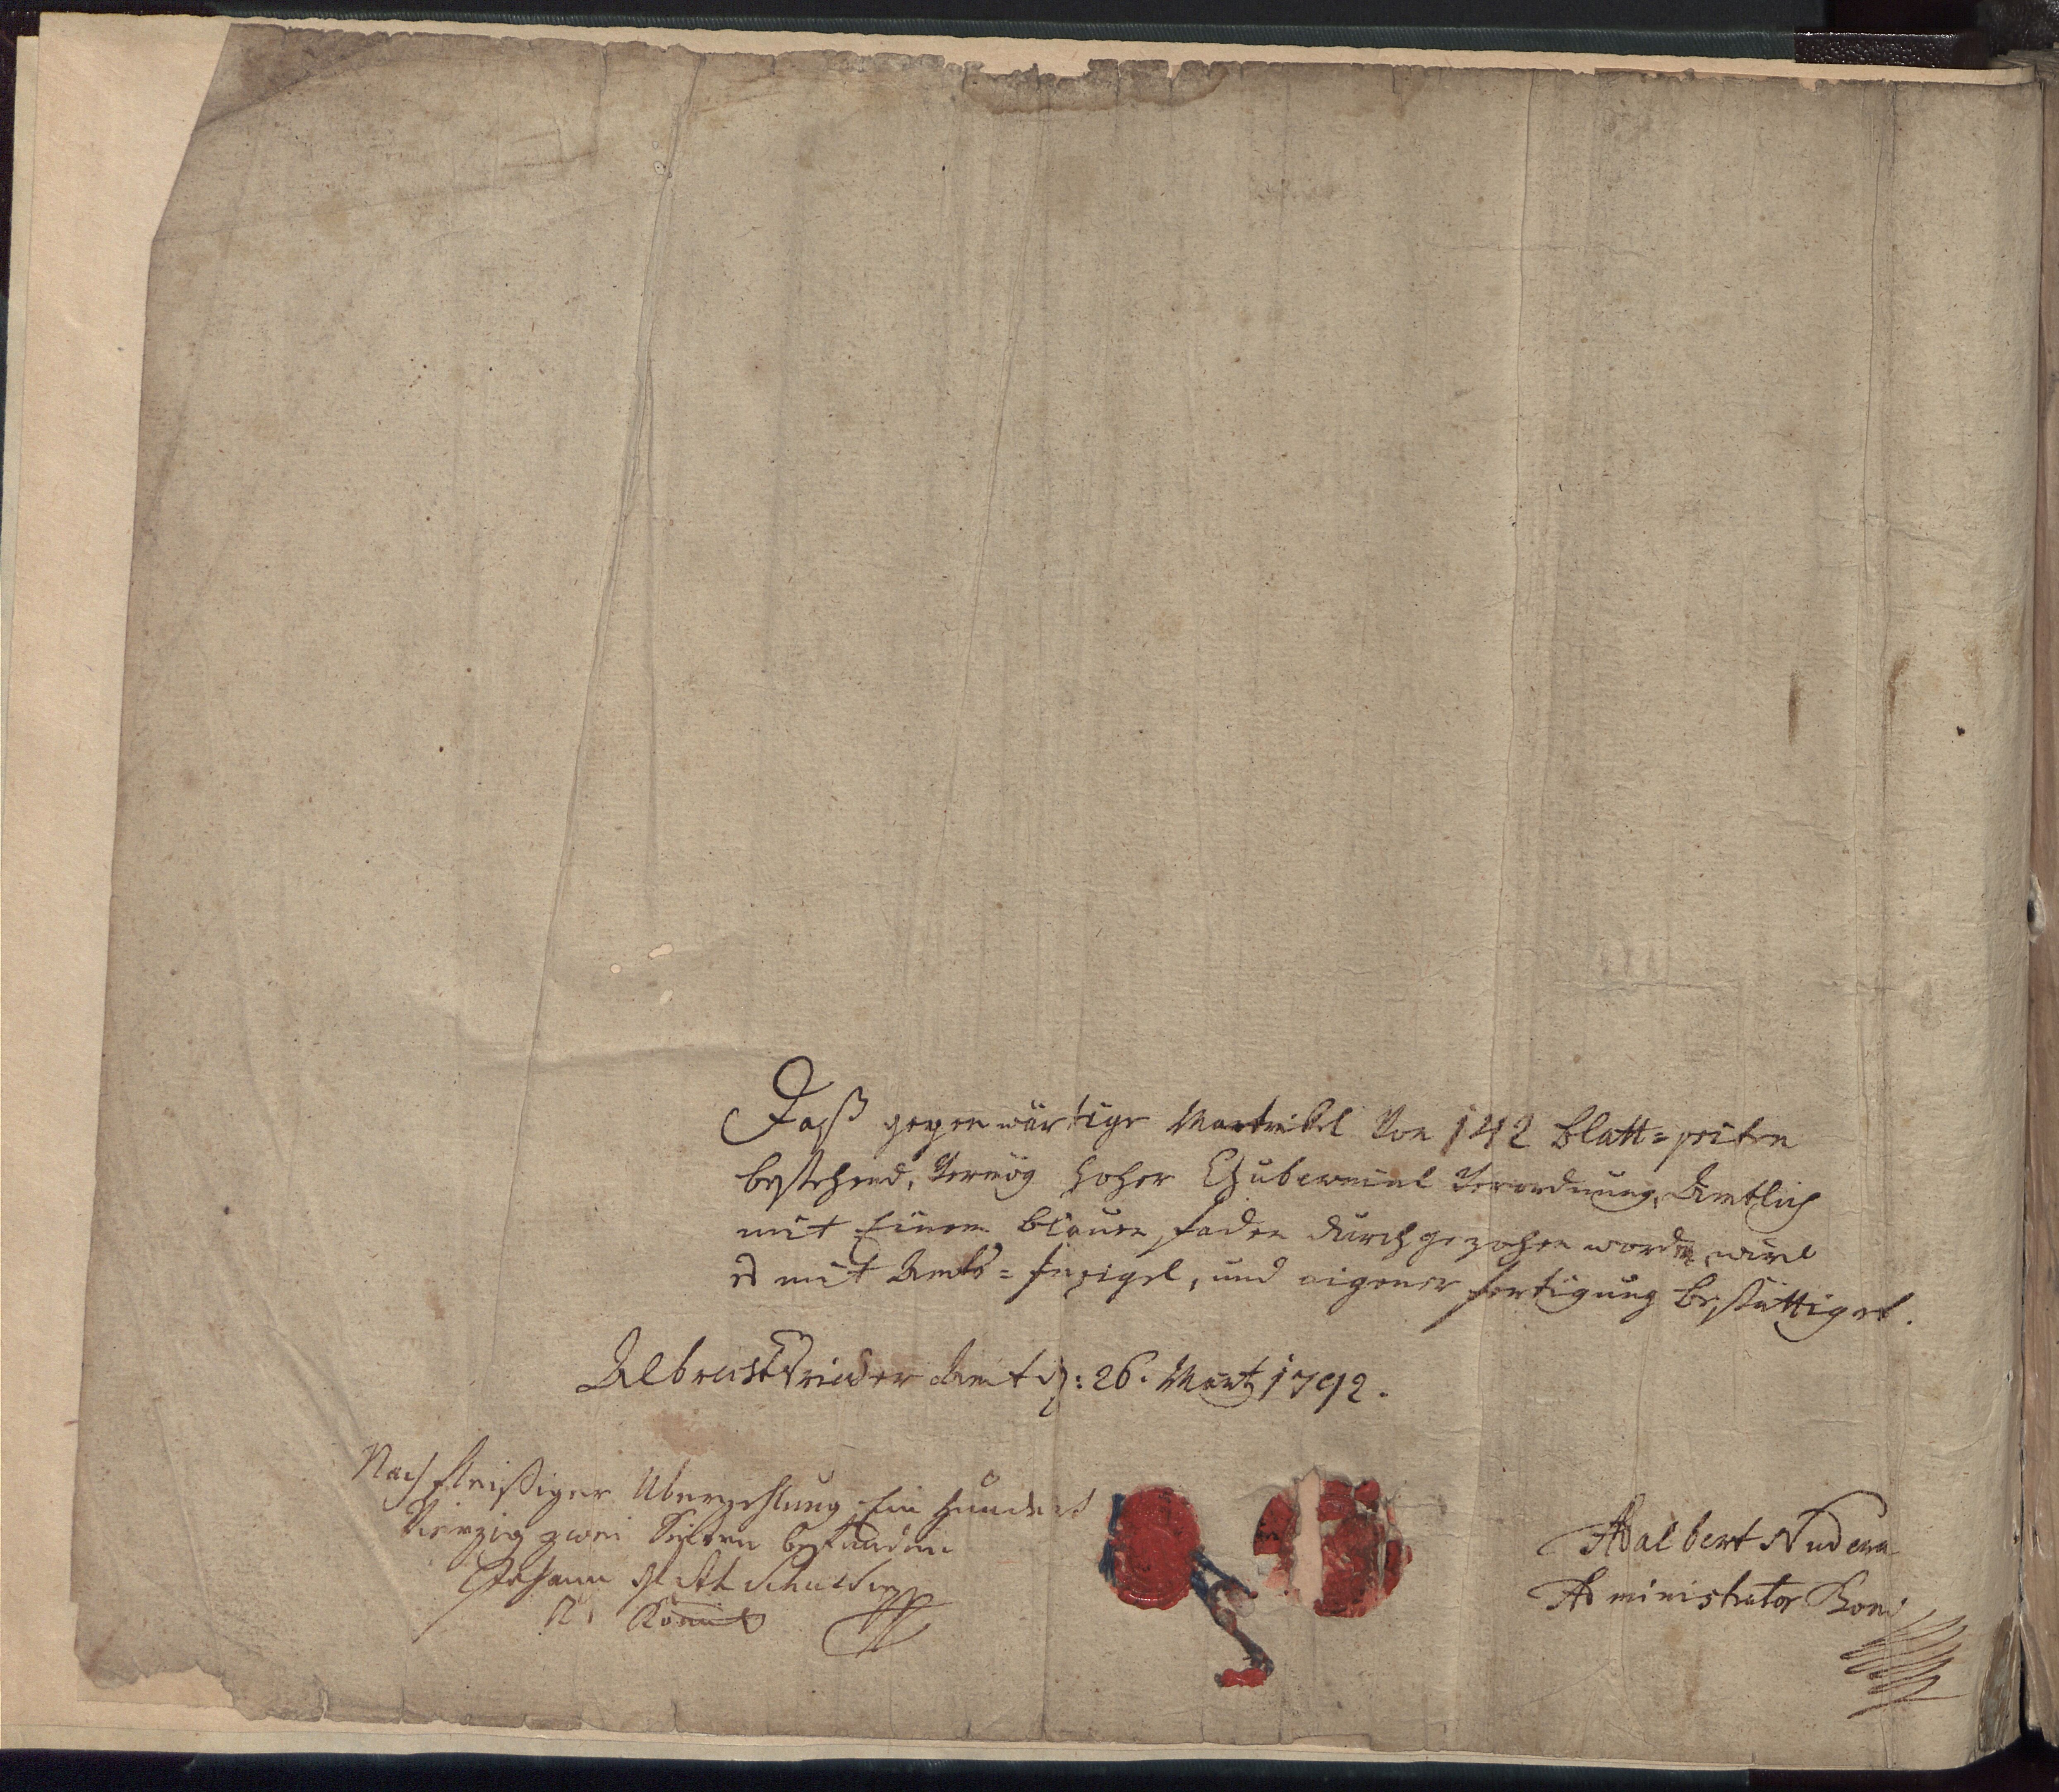 Daß gegenwärtige Matrikel Von 142 Blatt=seiten
bestehend, Vermög hoher Gubernial Verordnung, Amtlich
mit Einem blauen faden durchgezohen worden, wird
es mit Amts=Insigel, und eigener fertigung bestättiget.
Albrechtsrieder Amt d: 26. Märtz 1792.
Nach fleißiger Uberzehlung Ein hundert
Vierzig zwei Seiten befunden
Johann
Adalbert Nudera
Administrator Boni